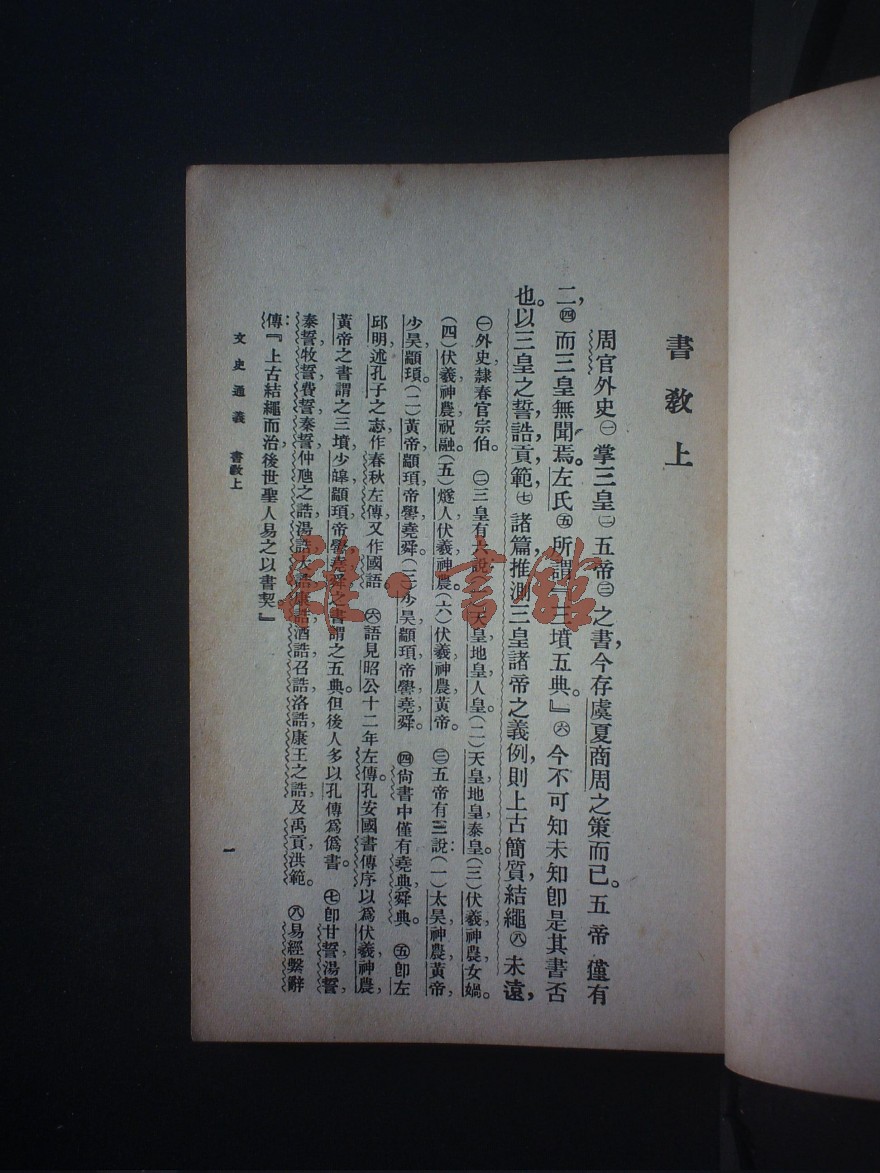 書教上
周官外史㊀掌三皇㊁五帝㊂之書，今存虞夏商周之策而已。五帝僅有
二，㊃而三皇無聞焉。左氏㊄所謂『三墳五典。』㊅今不可知，未知卽是其書否
也。以三皇之誓，誥，貢，範，㊆諸篇，推測三皇諸帝之義例，則上古簡質，結繩㊇未遠，
㊀外史，隸春官宗伯。　㊁三皇有六說：（一）天皇，地皇，人皇。（二）天皇，地皇，泰皇。（三）伏羲，神農，女媧。
（四）伏羲，神農，祝融。（五）燧人，伏羲，神農。（六）伏羲，神農，黃帝。　㊂五帝有三說：（一）太昊，神農，黃帝，
少昊，顓頊。（二）黃帝，顓頊，帝嚳，堯，舜。（三）少昊，顓頊，帝嚳，堯，舜。　㊃尙書中僅有堯典，舜典。　㊄卽左
邱明，述孔子之志，作春秋左傳，又作國語。　㊅語見昭公十二年左傳。孔安國書傳序以爲伏羲，神農，
黃帝之書，謂之三墳，少皞，顓頊，帝嚳，堯，舜之書，謂之五典。但後人多以孔傳爲僞書。　㊆卽甘誓，湯誓，
泰誓，牧誓，費誓，秦誓，仲虺之誥，湯誥，大誥，康誥，酒誥，召誥，洛誥，康王之誥，及禹貢，洪範。　㊇易經繫辭
傳：『上古結繩而治，後世聖人易之以書契。』
文史通義　書教上
一
雜·書館